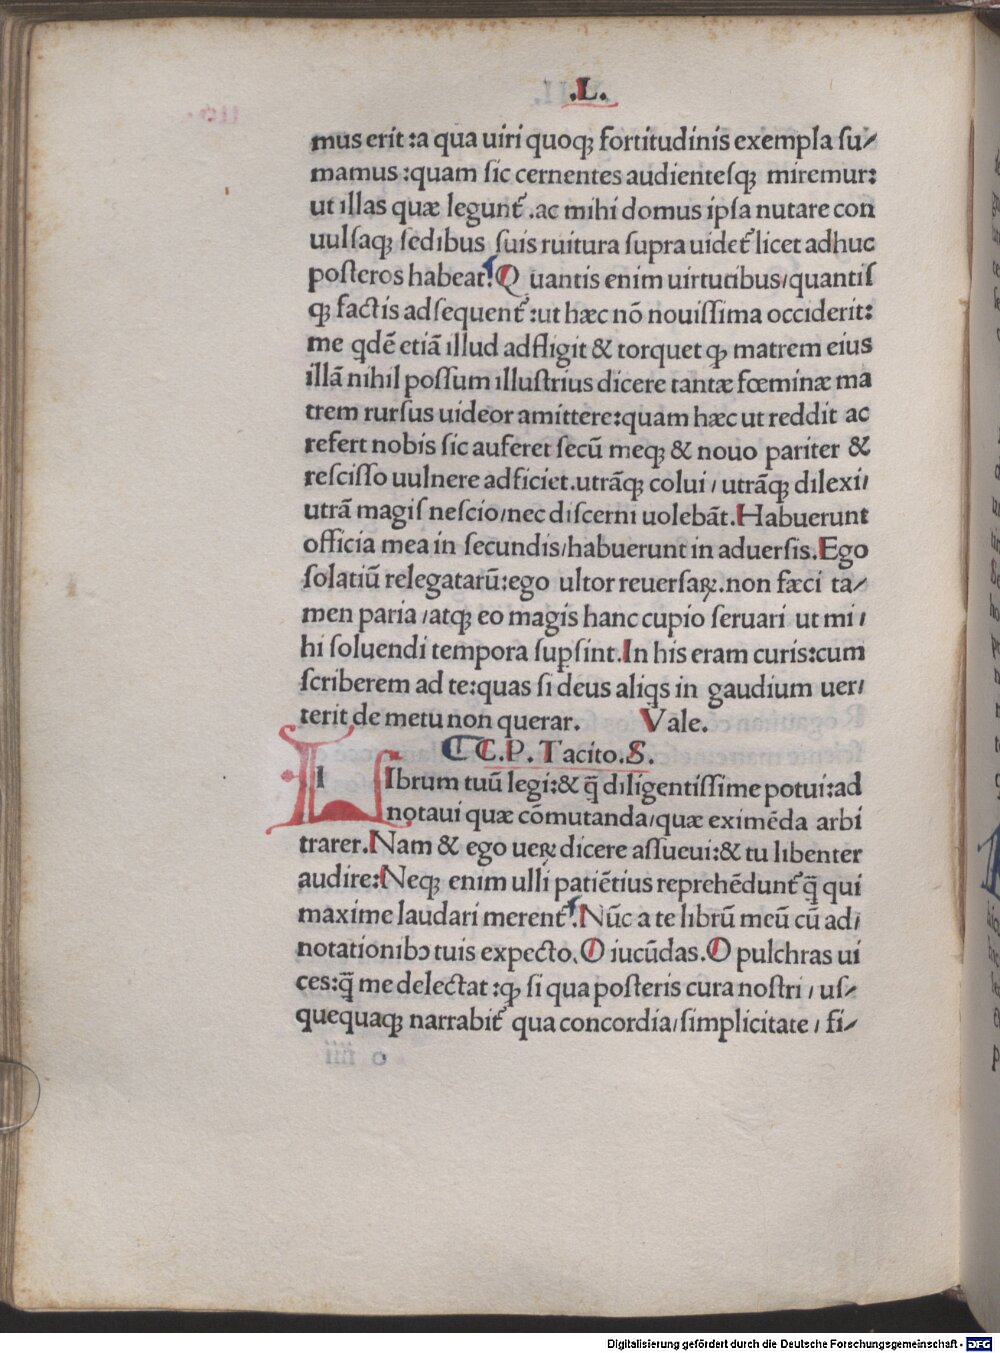 .L.
mus erit:a qua uiri quoqꝫ fortitudinis exempla ſu⸗
mamus:quam ſic cernentes audienteſqꝫ miremur:
ut illas quæ legunt᷑.ac mihi domus ipſa nutare con
uulſaqꝫ ſedibus ſuis ruitura ſupra uidet᷑ licet adhuc
poſteros habeat. Quantis enim uirtutibus/quantiſ
qꝫ factis adſequent᷑:ut hæc nō nouiſſima occiderit:
me qdē etiā illud adfligit & torquet ꝙ matrem eius
illā nihil poſſum illuſtrius dicere tantæ fœminæ ma
trem rurſus uideor amittere:quam hæc ut reddit ac
refert nobis ſic auferet ſecū meqꝫ & nouo pariter &
reſciſſo uulnere adficiet.utrāqꝫ colui/utrāqꝫ dilexi/
utrā magiſ neſcio/nec diſcerni uolebāt.Habuerunt
officia mea in ſecundis/habuerunt in aduerſis.Ego
ſolatiū relegatarū:ego ultor reuerſaꝝ.non fæci ta⸗
men paria/atqꝫ eo magis hanc cupio ſeruari ut mi/
hi ſoluendi tempora ſupſint.In his eram curis:cum
ſcriberem ad te:quas ſi deus aliqs in gaudium uer/
terit de metu non querar. Vale.
C.P. Tacito.S.
LIbrum tuū legi:& q̄ diligentiſſime potui:ad
notaui quæ cōmutanda/quæ eximēda arbi
trarer.Nam & ego ueꝝ dicere aſſueui:& tu libenter
audire:Neqꝫ enim ulli patiētius reprehēdunt᷑ q̄ qui
maxime laudari merent᷑.Nūc a te librū meū cū ad/
notationibꝯ tuis expecto.O iucūdas.O pulchras ui
ces:q̄ me delectat:ꝙ ſi qua poſteris cura noſtri/uſ⸗
quequaqꝫ narrabit᷑ qua concordia/ſimplicitate/fi⸗
Digitalisierung gefördert durch die Deutsche Forschungsgemeinschaft - DFG